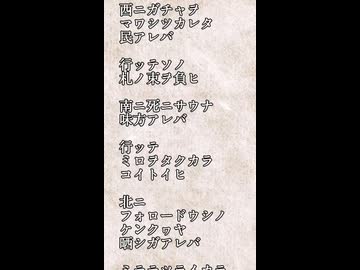 西ニガチャヲ
マワシツカレタ
民アレバ
行ッテソノ
札ノ束ヲ負ヒ
南ニ死ニサウナ
味方アレバ
行ッテ
ミロヲタクカラ
コイトイヒ
北ニ
フォロードウシノ
ケンクヮヤ
晒シガアレバ